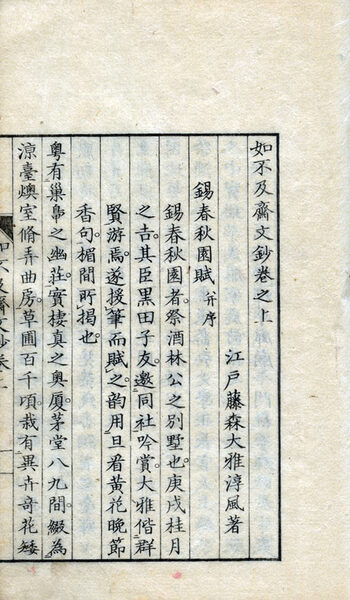 如不及齋文鈔卷之上
江戸藤森大雅淳風著
錫春秋園賦 幷序
錫春秋園者祭酒林公之別墅也庚戌桂月
之吉其臣黒田子友邀同社吟賞大雅偕群
賢游焉遂援筆而賦之韵用且看黃花晚節
香句楣間所揭也
粤有巢鳧之幽莊實棲真之奧厦茅堂八九間綴為
凉臺燠室脩弄曲房草圃百千頃栽有異卉奇花矮